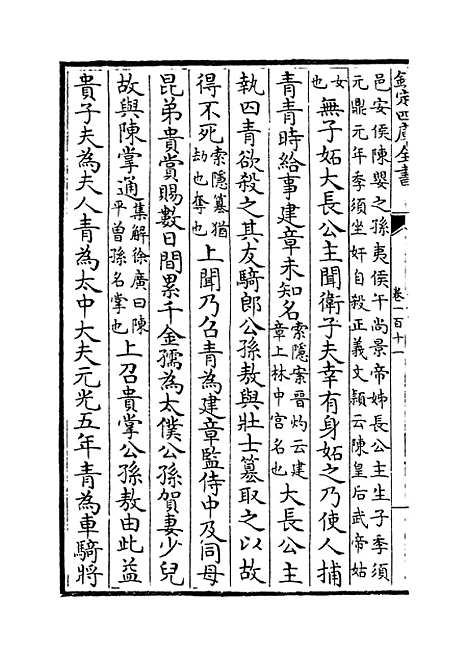 欽定四庫全書
卷一百十一
邑安侯陳嬰之孫夷侯午尚景帝姊長公主生子季須
元鼎元年季須坐奸自殺正義文穎云陳皇后武帝姑
女也
無子妬大長公主聞衛子夫幸有身妬之乃使人捕
青青時給事建章未知名索隱案晉灼云建章上林中宮名也大長公主
執囚青欲殺之其友騎郎公孫敖與壯士簒取之以故
得不死索隱簒猶劫也奪也上聞乃召青為建章監侍中及同母
昆弟貴賞賜數日間累千金孺為太僕公孫賀妻少兒
故與陳掌通集解徐廣曰陳平曾孫名掌也上召貴掌公孫敖由此益
貴子夫為夫人青為太中大夫元光五年青為車騎將